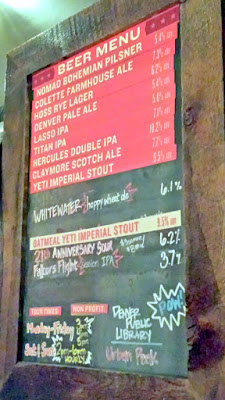 BEER MENU
NOMAD BOHEMIAN PILSNER 5.4%
COLETTE FARMHOUSE ALE 7.3%
HOSS RYE LAGER 6.2%
DENVER PALE ALE
LASSO IPA
TITAN IPA 7.1%
HERCULES DOUBLE IPA 10.2%
CLAYMORE SCOTCH ALE 7.7%
YETI IMPERIAL STOUT 9.5% ABV
WHITEWATER hoppy wheat ale 6.1%
OATMEAL YETI IMPERIAL STOUT 9.5% ABV
21st ANNIVERSARY Sour 6.2%
Falcors Flight Session IPA 3.7%
YOUR TIMES:
Monday-Friday
Sat & Sun 2pm-8pm
HOURLY
NON PROFIT:
DENVER
PUBLIC
LIBRARY
Urban Peak
POW!